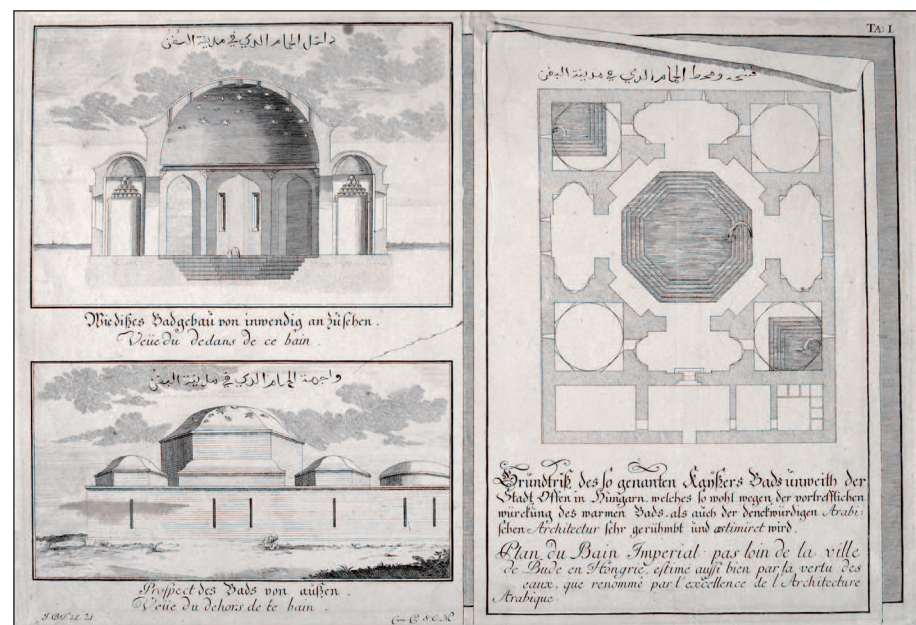 داخل الحمام الذي في مدينة البفن
Wie dißes Badgebäu von inwendig an zusehen.
Veüe du dedans de ce bain.
واجهة الحمام الذي في مدينة البفن
Prospect des Bads von außen.
Veüe du dehors de te bain.
Cum P. S. C. M.
TA: I.
الحمام الذي في مدينة البفن
Gründtriß des so genanten Kaÿßers Bads ünweith der
Stadt Offen in Hüngarn, welches so wohl wegen der vortrefflichen
würckung des warmen Bads, als auch der denckwürdigen Arabi-
schen Architectur sehr gerühmbt und æstimiret wird.
Plan du Bain Imperial pas loin de la ville
de Bude en Hongrie, estime aussi bien par la vertu des
eaux, que renommé par l'excellence de l'Architecture
Arabique.